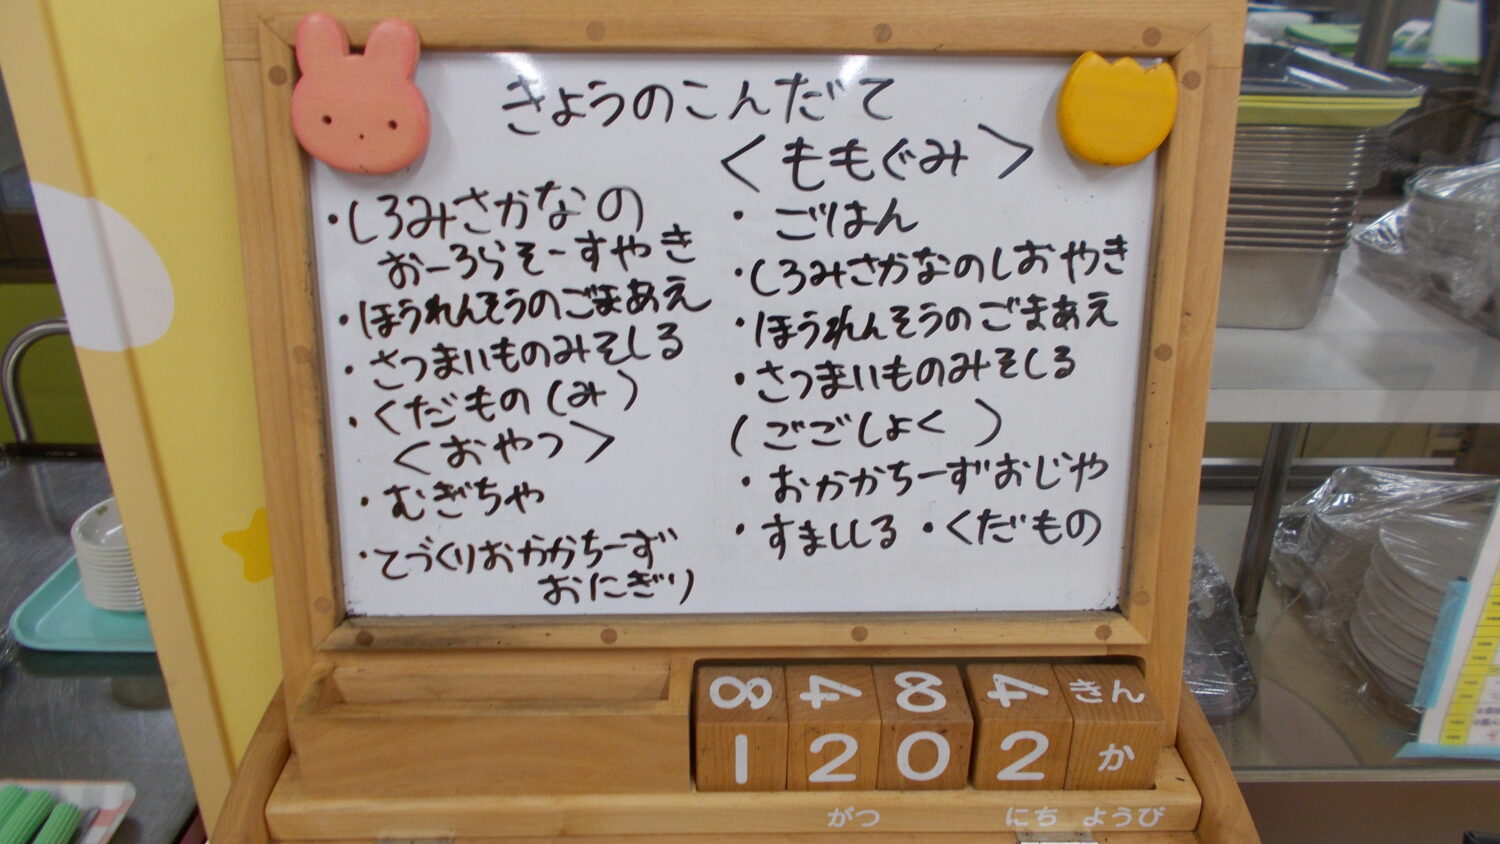 きょうのこんだて
・しろみさかなの
おーろらそーすやき
・ほうれんそうのごまあえ
・さつまいものみそしる
・くだもの(み)
<おやつ>
・むぎちゃ
・てづくりおかかちーず
おにぎり
<ももぐみ>
・ごはん
・しろみさかなのしおやき
・ほうれんそうのごまあえ
・さつまいものみそしる
(ごごしょく)
・おかかちーずおじや
・すましじる・くだもの
8 4 8 4 きん
1 2 0 2 か
がつ にち ようび